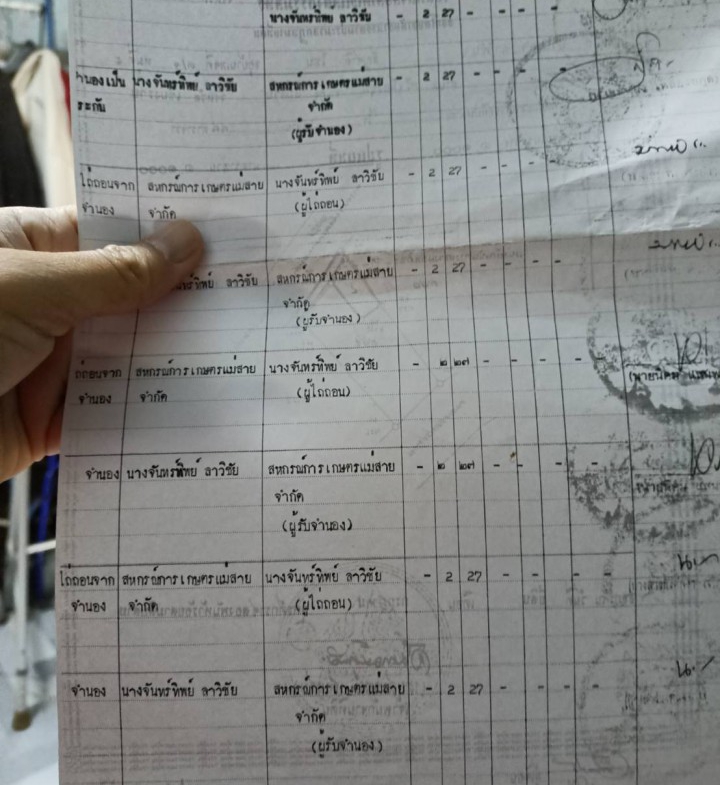 นางจันทร์ทิพย์ ลาวิชัย - 2 27 - - - -
จำนองเป็น นางจันทร์ทิพย์ ลาวิชัย สหกรณ์การเกษตรแม่สาย - 2 27 - - - -
ประกัน จำกัด
(ผู้รับจำนอง)
ไถ่ถอนจาก สหกรณ์การเกษตรแม่สาย นางจันทร์ทิพย์ ลาวิชัย - 2 27 - - - -
จำนอง จำกัด (ผู้ไถ่ถอน)
ลาวิชัย สหกรณ์การเกษตรแม่สาย - 2 27 - - - -
จำกัด
(ผู้รับจำนอง)
ไถ่ถอนจาก สหกรณ์การเกษตรแม่สาย นางจันทร์ทิพย์ ลาวิชัย - ๒ ๒๗ - - - - -
จำนอง จำกัด (ผู้ไถ่ถอน)
จำนอง นางจันทร์ทิพย์ ลาวิชัย สหกรณ์การเกษตรแม่สาย - ๒ ๒๗ - - - - -
จำกัด
(ผู้รับจำนอง)
ไถ่ถอนจาก สหกรณ์การเกษตรแม่สาย นางจันทร์ทิพย์ ลาวิชัย - 2 27 - - - - -
จำนอง จำกัด (ผู้ไถ่ถอน)
จำนอง นางจันทร์ทิพย์ ลาวิชัย สหกรณ์การเกษตรแม่สาย - 2 27 - - - - -
จำกัด
(ผู้รับจำนอง)